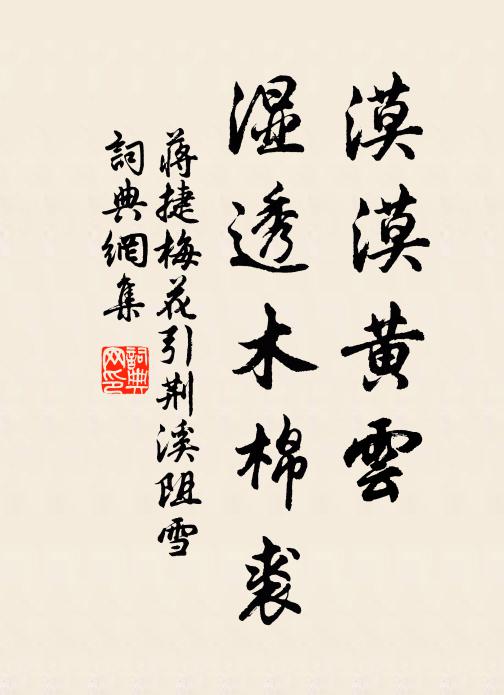 漠漠黄雲
湿透木棉裘
蔣捷梅花引荆溪阻雪
詞典網集
詞典网印